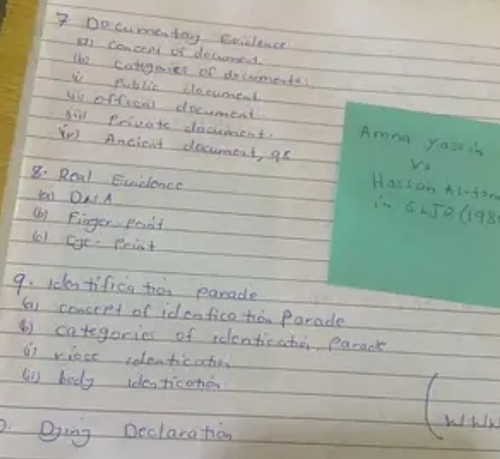 7 Documentary Evidence
(a) concept of document
(b) categories of documents:
i) Public document
ii) official document
iii) Private document.
iv) Ancient document, 95
8. Real Evidence
(a) D.N.A
(b) Finger Point
(c) Eye-Print
9. identification parade
(a) concept of identification Parade
(b) categories of identication Parade
i) identication
(ii) body identication
Dying Declaration
Amna Yassin
Vs
Hassan
in (198
(WWW